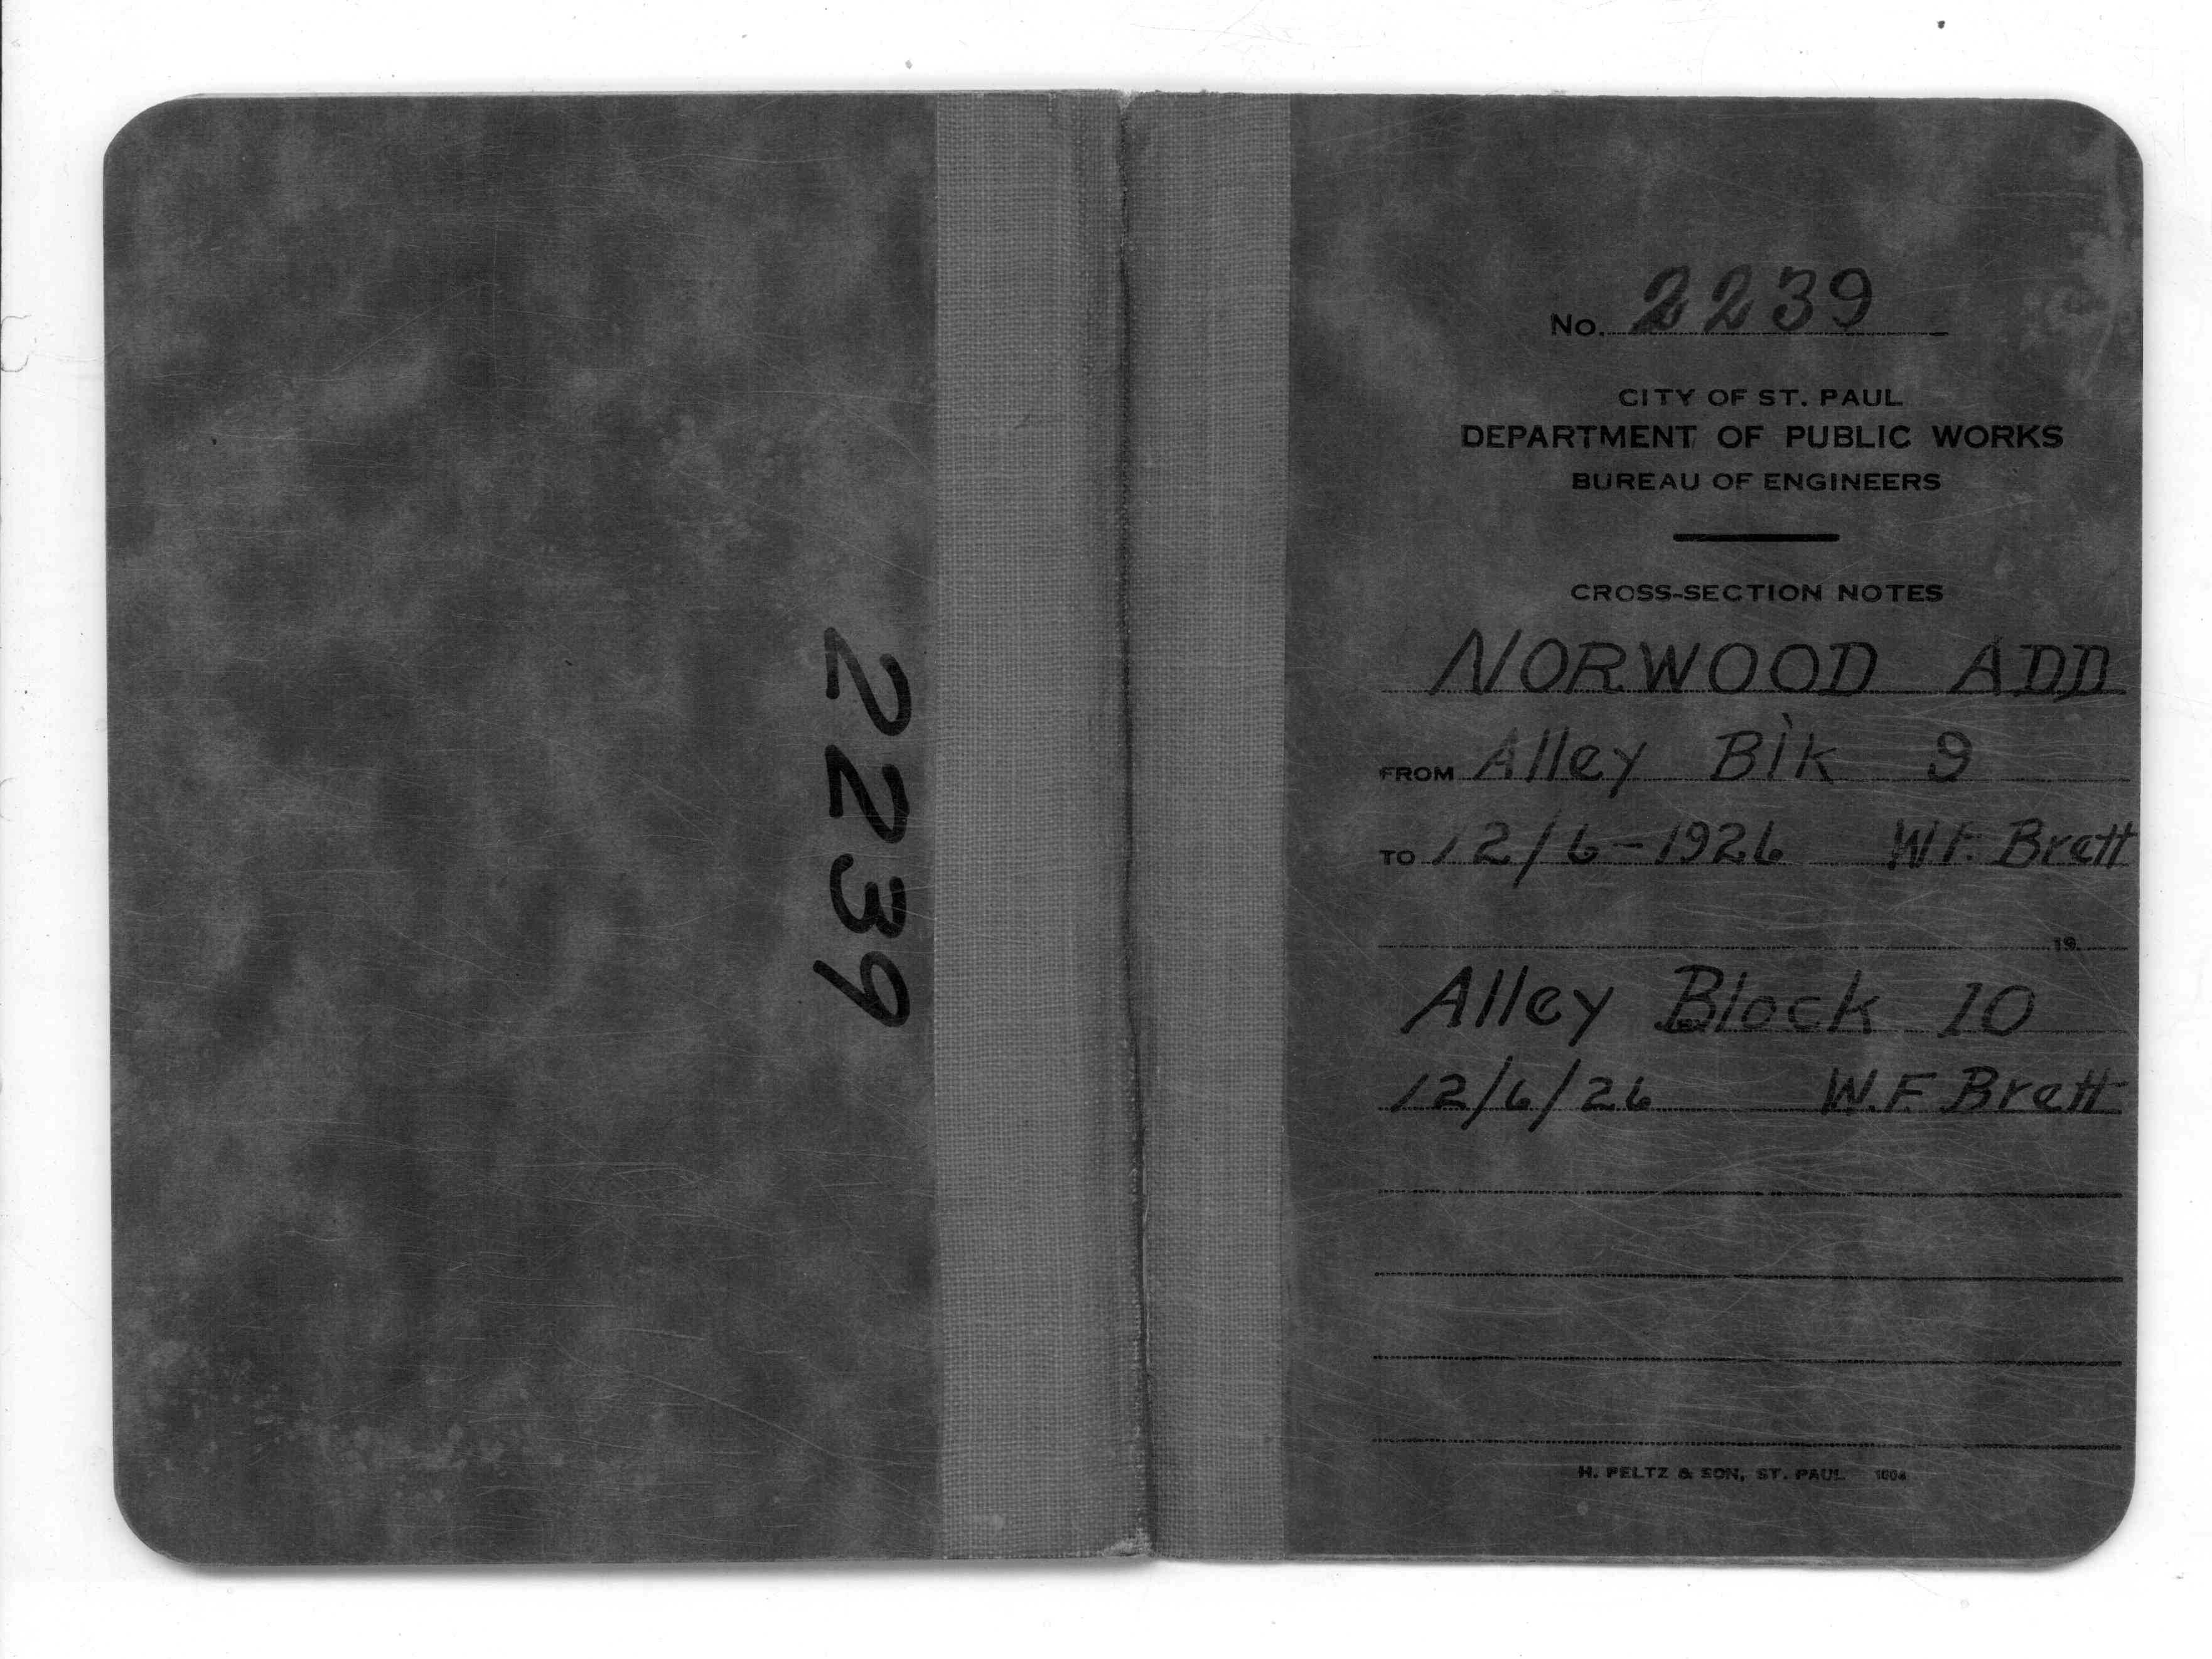 2239
No. 2239
CITY OF ST. PAUL
DEPARTMENT OF PUBLIC WORKS
BUREAU OF ENGINEERS
CROSS-SECTION NOTES
NORWOOD ADD
FROM Alley Blk 9
TO 12/6-1926 W.F. Bratt
19
Alley Block 10
12/6/26 W.F. Bratt
H. PELTZ & SON, ST. PAUL